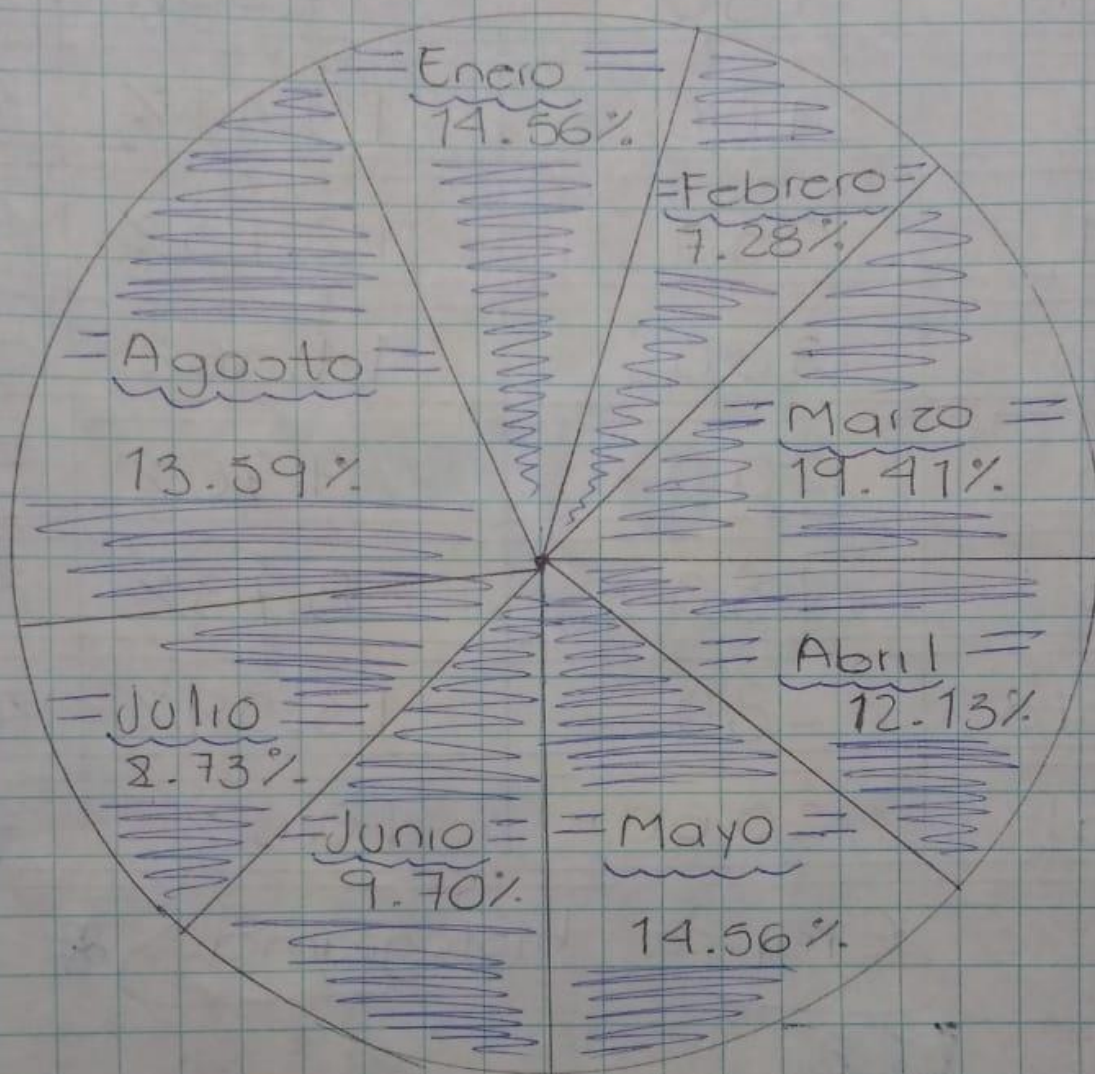 Enero
14.56%
Febrero
7.28%
Marzo
19.41%
Abril
12.13%
Mayo
14.56%
Junio
9.70%
Julio
8.73%
Agosto
13.59%